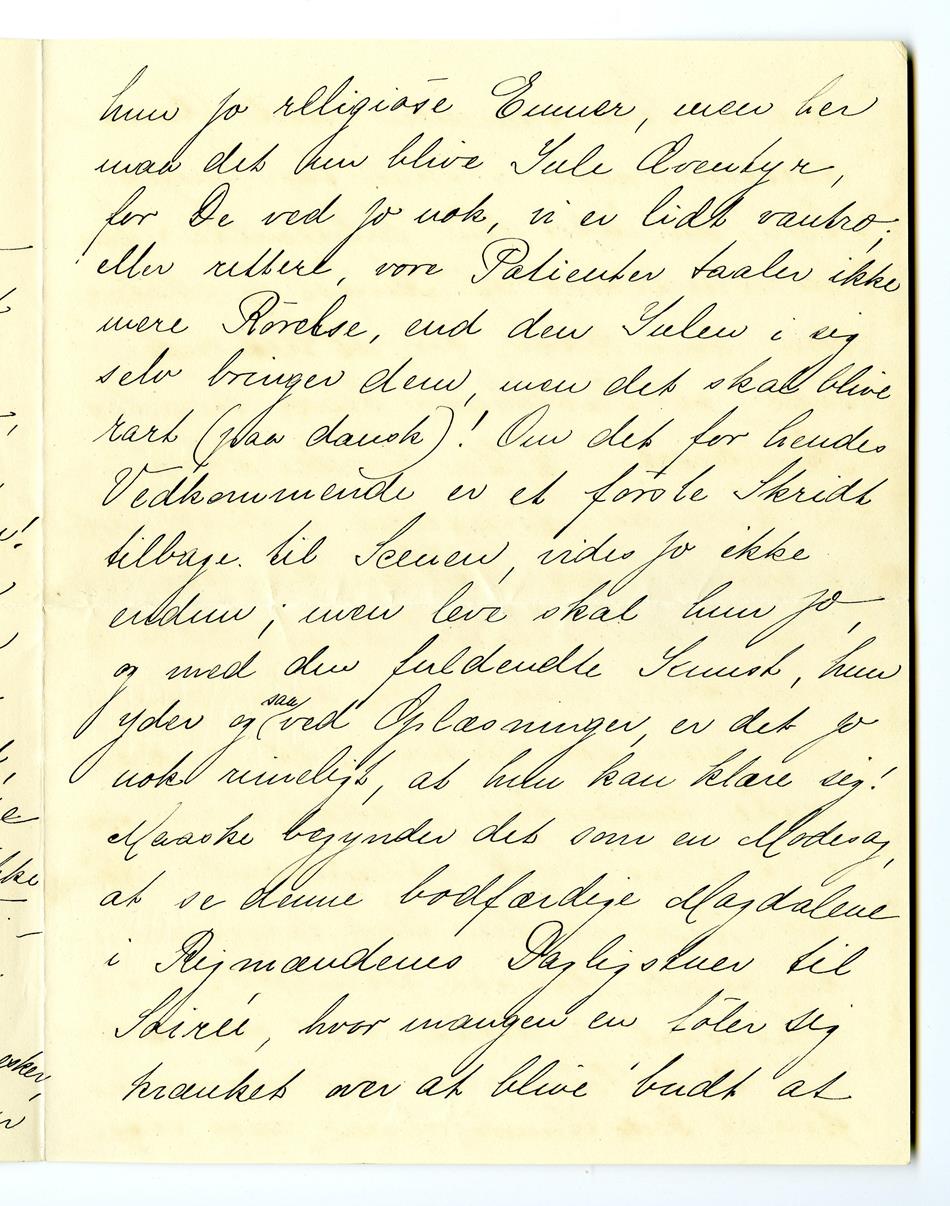 hun jo religiöse Emner, men her
maa det nu blive Jule Æventyr,
for De ved jo nok, vi er lidt vantro,
eller rettere, vore Patienter taaler ikke
mere Rörelse, end den Julen i sig
selv bringer dem, men det skal blive
rart (paa dansk)! Om det for hendes
Vedkommende er et förste Skridt
tilbage til Scenen, vides jo ikke
endnu; men leve skal hun jo,
og med den fuldendte Kunst, hun
yder og saa ved Oplæsninger, er det jo
nok rimeligt, at hun kan klare sig!
Maaske begynder det som en Modesag,
at se denne bodfærdige Magdalene
i Rigmændenes Dagligstuer til
Soiréé, hvor mangen en föler sig
krænket over at blive budt at